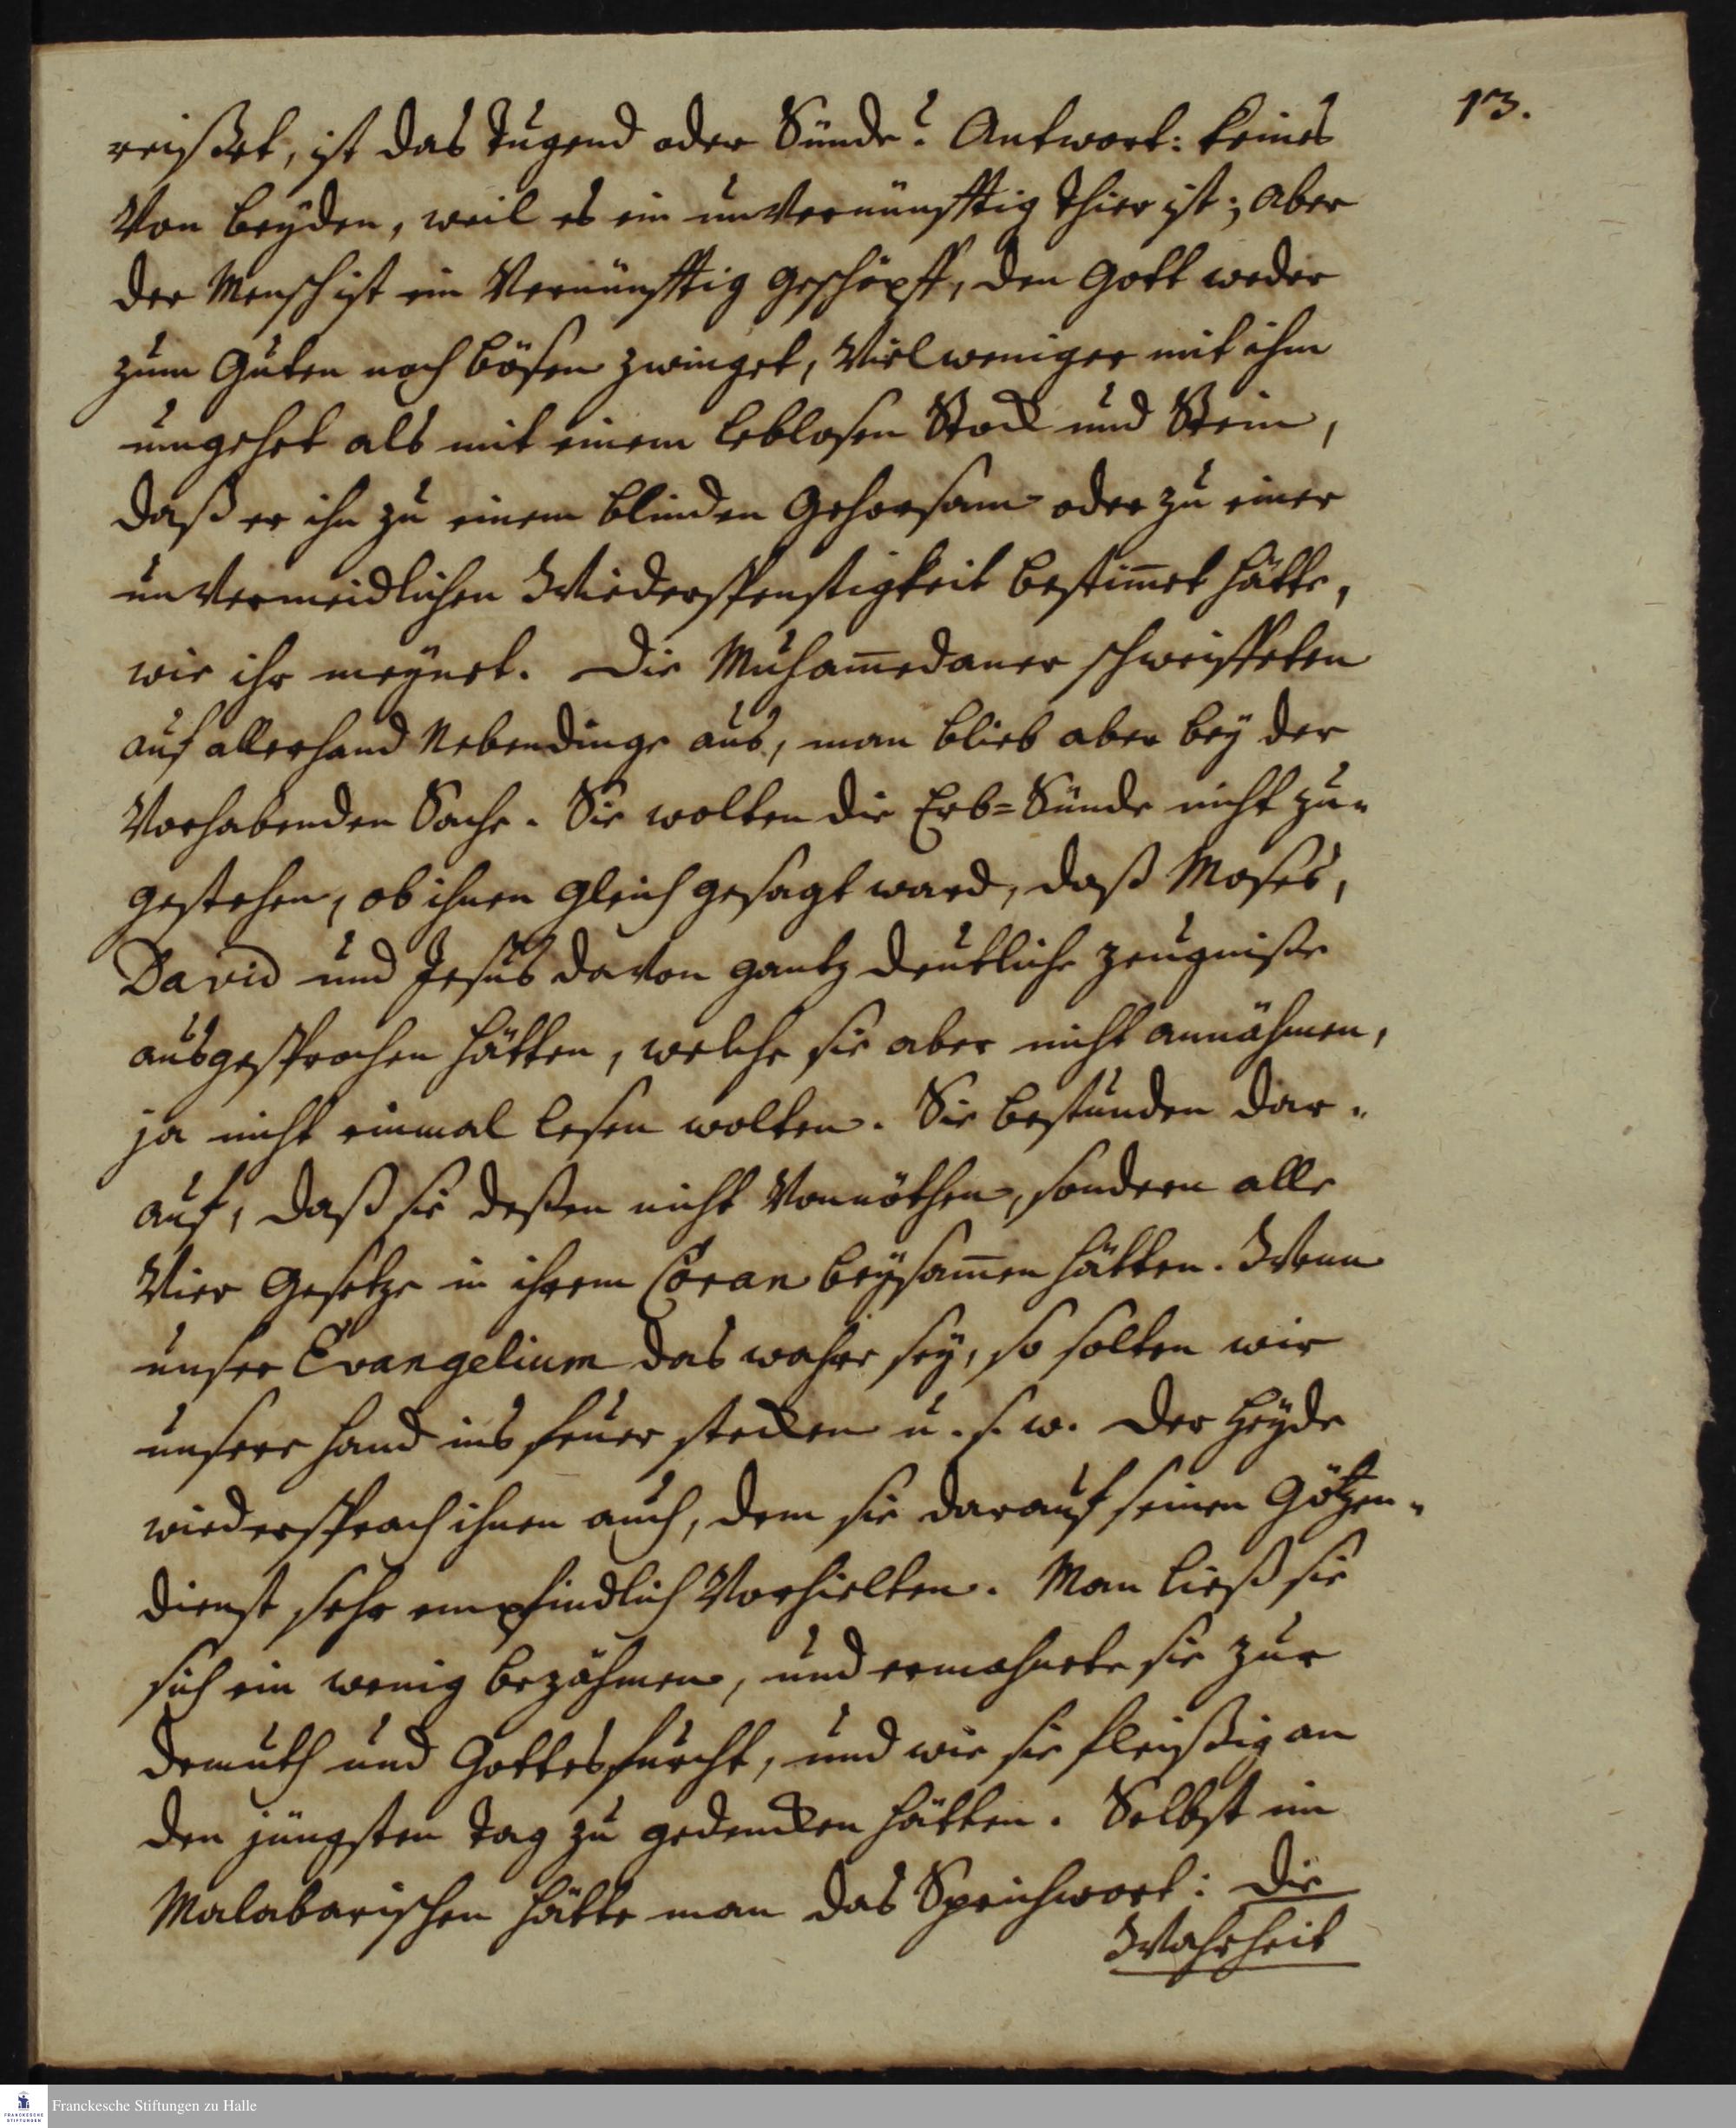 13.
reißet, ist das Tugend oder Sünde? Antwort: keines
von beyden, weil es ein unvernünfftig Thier ist; aber
der Mensch ist ein vernünfftig Geschöpff, den Gott weder
zum Guten noch bösen zwinget, vielweniger mit ihm
umgehet als mit einem leblosen Stock und Stein,
daß er ihn zu einem blinden Gehorsam oder zu einer
unvermeidlichen Wiederspenstigkeit bestim̅et hätte,
wie ihr meynet. Die Muham̅edaner schweiffeten
auf allerhand Nebendinge aus, man blieb aber bey der
vorhabenden Sache. Sie wolten die Erb=Sünde nicht zu-
gestehen, ob ihnen gleich gesagt ward, daß Moses,
David und Jesus davon gantz deutliche Zeugniße
ausgesprochen hätten, welche sie aber nicht annähmen,
ja nicht einmal lesen wolten. Sie bestunden dar-
auf, daß sie deßen nicht vonnöthen, sondern alle
vier Gesetze in ihrem Coran beysam̅en hätten. Wenn
unser Evangelium das wahre sey, so solten wir
unsere Hand ins Feuer stecken u. s. w. Der Heyde
wiedersprach ihnen auch, dem sie darauf seinen Götzen-
dienst sehr empfindlich vorhielten. Man ließ sie
sich ein wenig bezähmen, und ermahnete sie zur
Demuth und Gottesfurcht, und wie sie fleißig an
den jüngsten Tag zu gedencken hätten. Selbst im
Malabarischen hätte man das Sprichwort: Die
Wahrheit
FRANCKESCHE STIFTUNGEN
Franckesche Stiftungen zu Halle